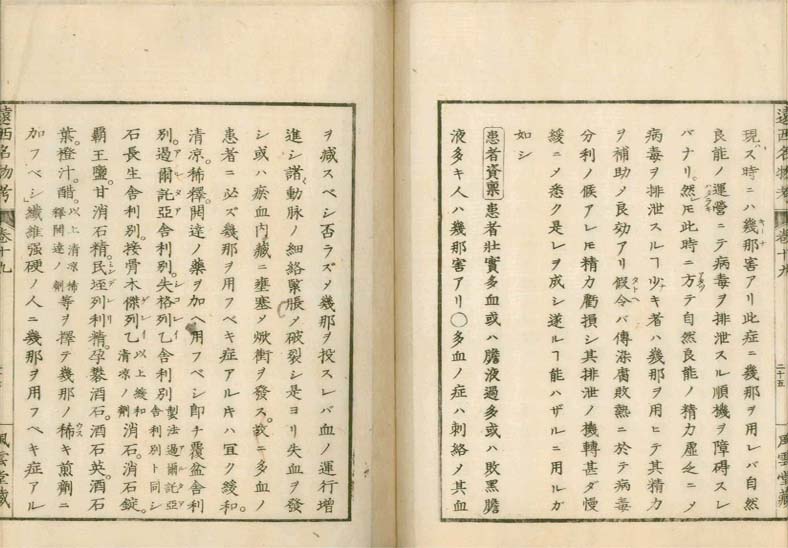 遠西名物考 巻十九 二十五 風雲堂蔵
現ス時ニハ幾那害アリ此症ニ幾那ヲ用レバ自然
良能ノ運営ニテ病毒ヲ排泄スル順機ヲ障碍スレ
バナリ然㆑𪜈此時ニ方テ自然良能ノ精力虚乏ニメ
病毒ヲ排泄スルヿ少キ者ハ幾那ヲ用ヒテ其精力
ヲ補助メ良効アリ假令バ傳染腐敗熱ニ於テ病毒
分利ノ候アレ𪜈精力虧損シ其排泄ノ機轉甚ダ慢
緩ニメ悉ク是レヲ成シ遂ルヿ能ハザルニ用ルガ
如シ
患者資稟 患者壮實多血或ハ膽液過多或ハ敗黒膽
液多キ人ハ幾那害アリ〇多血ノ症ハ刺絡メ其血
ヲ減スベシ否ラズメ幾那ヲ投スレバ血ノ運行増
進シ諸動脉ノ細絡緊脹メ破裂シ是ヨリ失血ヲ發
シ或ハ瘀血内藏ニ壅塞メ焮衝ヲ發ス。故ニ多血ノ
患者ニ必ズ幾那ヲ用フベキ症アル𪜈ハ宜ク緩和。
清涼。稀釋。開達ノ藥ヲ加ヘ用フベシ即チ覆盆舎利
別。過爾託亞舎利別。失格列乙舎利別 製法過爾託亞舎利別ト同シ
石長生舎利別。接骨木傑列乙 以上緩和清凉ノ劑 消石。消石錠。
覇王鹽。甘消石精。民垤列利精。孕礬酒石。酒石英。酒石
葉。橙汁。醋。以上清凉稀釋開達ノ劑 等ヲ擇テ幾那ノ稀キ煎劑ニ
加フベシ 纎維强硬ノ人ニ幾那ヲ用フベキ症アル
遠西名物考 巻十九 風雲堂蔵